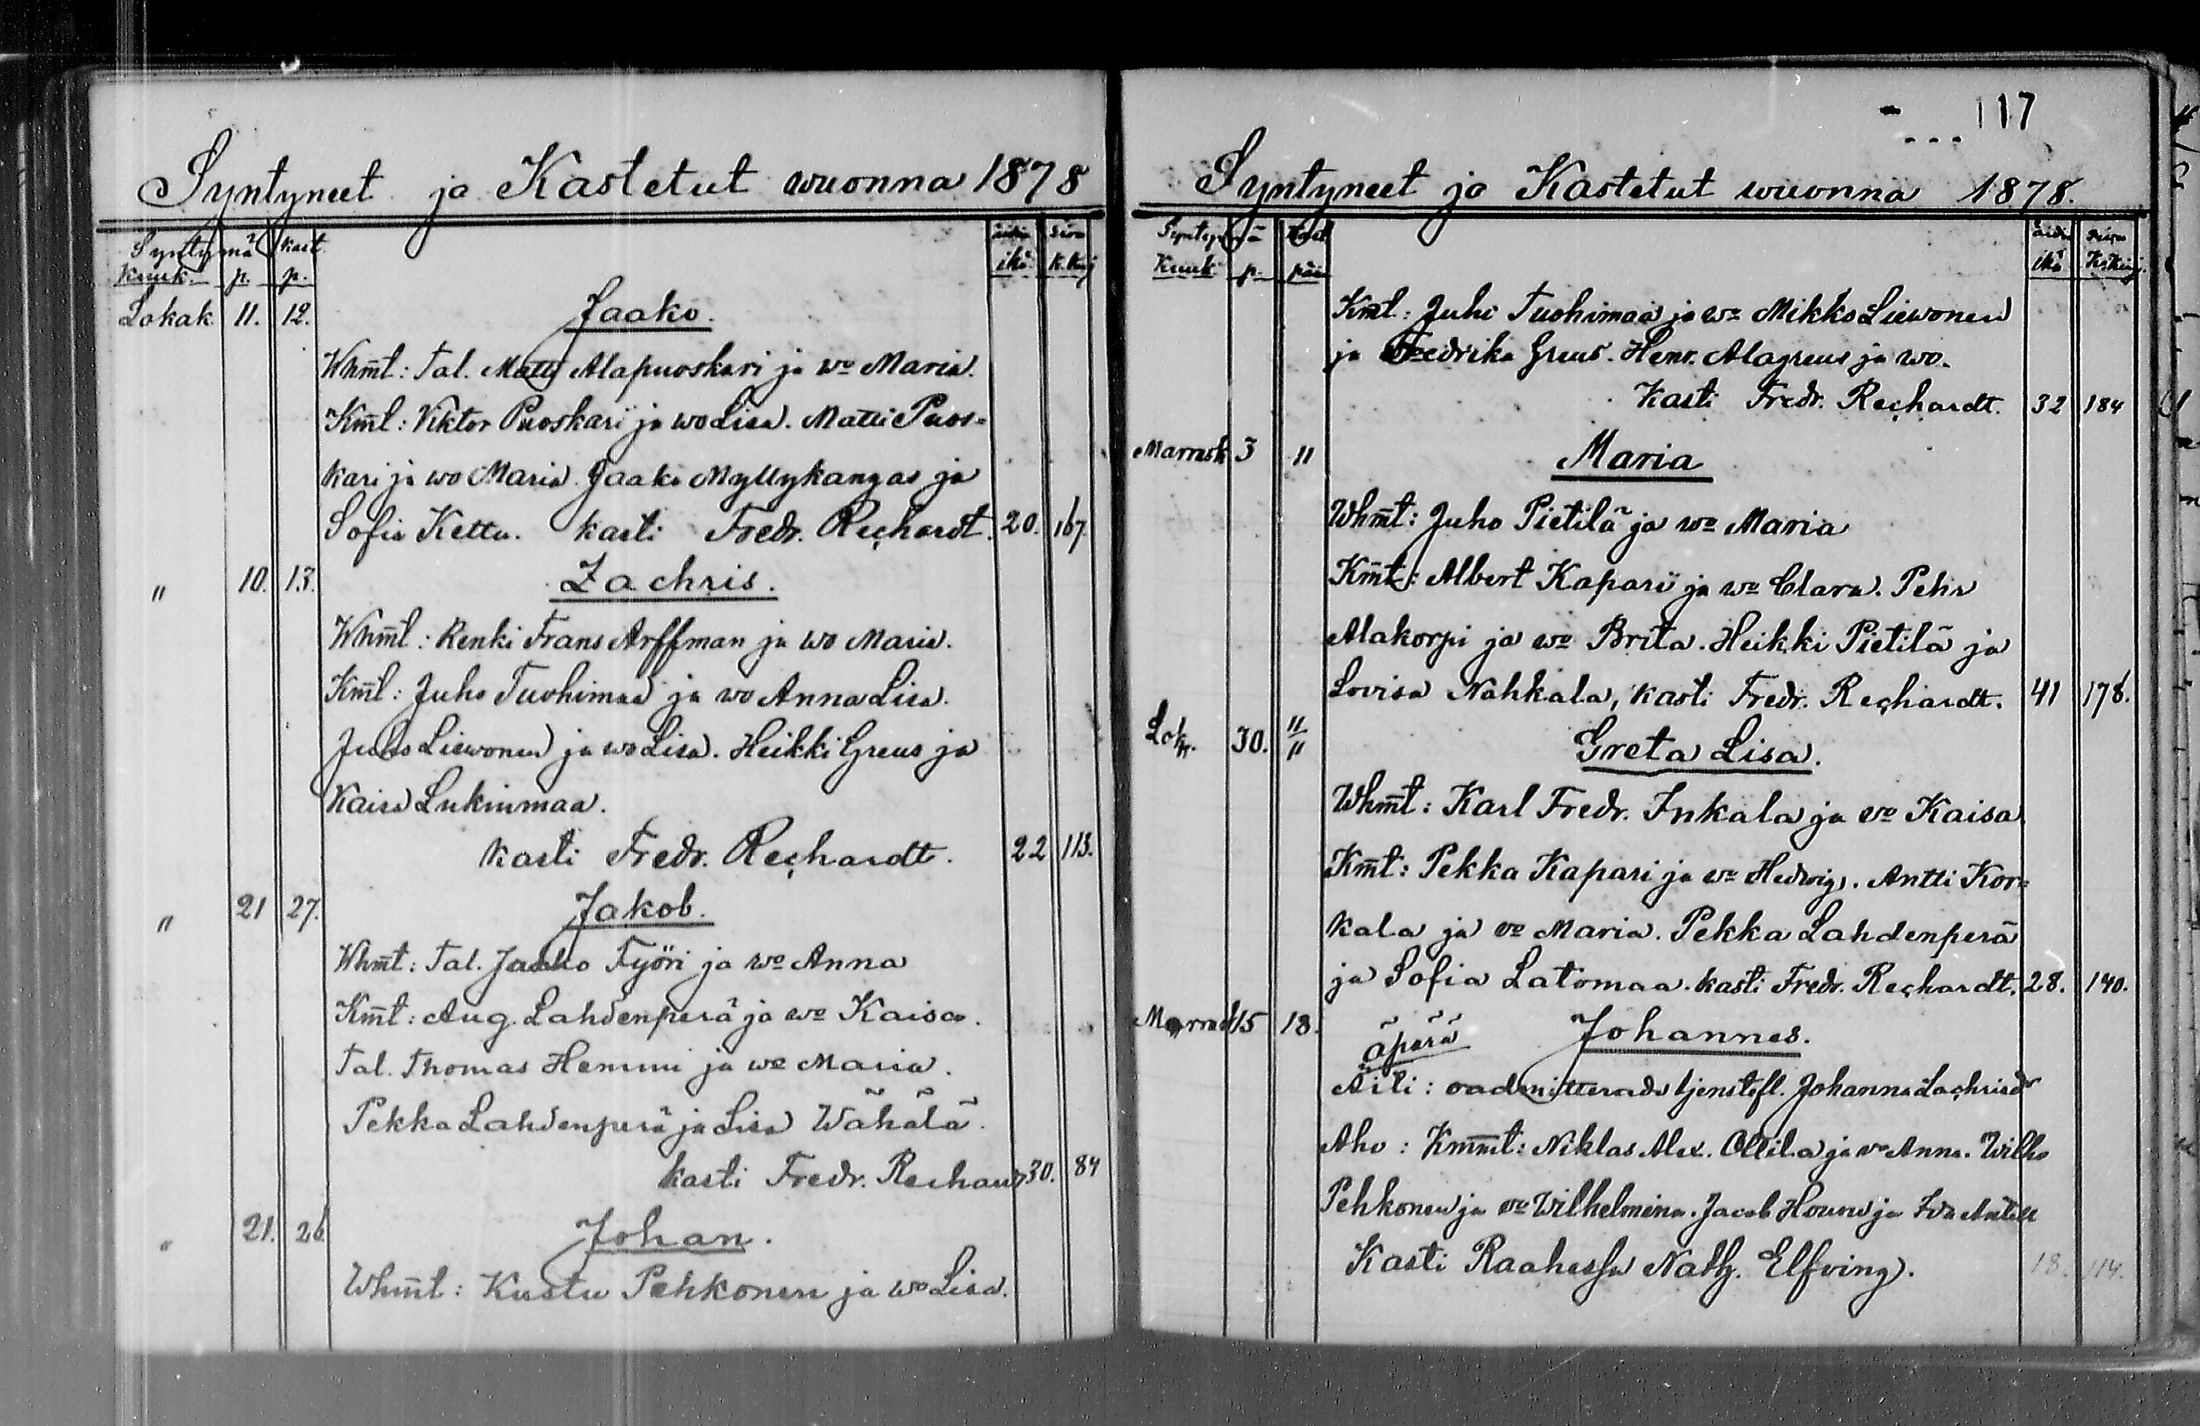 Syntyneet ja Kastetut wuonna 1878
Syntymä kast. äidin
Kuuk. p. p. ikä K.Kirj
Lokak 11. 12. Jaako.
Whm̅t: Tal. Matti Alapuoskari ja wo Maria.
Km̅t: Viktor Puoskari ja wo Lisa. Matti Puos-
kari ja wo Maria. Jaako Myllykangas ja
Sofia Kettu. kasti Fredr. Rechardt. 20. 167
" 10. 13. Zachris.
Whm̅t: Renki Frans Arffman ja wo Maria.
Km̅t: Juho Tuohimaa ja wo Anna Lisa.
Juho Liewonen ja wo Lisa. Heikki Greus ja
Kaisa Lukinmaa.
kasti Fredr. Rechardt. 22 113.
" 21 27. Jakob.
Whm̅t: Tal. Jaako Työri ja wo Anna
Km̅t: Aug. Lahdenperä ja wo Kaisa.
Tal. Thomas Hemmi ja wo Maria.
Pekka Lahdenperä ja Lisa Wähälä.
kasti Fredr. Rechardt 30. 84
" 21. 26 Johan.
Whm̅t: Kustu Pehkonen ja wo Lisa.
117
Syntyneet ja Kastetut wuonna 1878.
Syntymä Kast äidin
Kuuk p. päiv ikä K.Kirj.
Km̅t: Juho Tuohimaa ja wo Mikko Liewonen
ja Fredrika Greus. Henr. Alagreus ja wo.
Kasti Fredr. Rechardt. 32 184
Marrask 3 11 Maria
Whm̅t: Juho Pietilä ja wo Maria
Km̅t: Albert Kapari ja wo Clara. Pehr
Alakorpi ja wo Brita. Heikki Pietilä ja
Lovisa Nahkala, kasti Fredr. Rechardt. 41 178.
Lok. 30. 11/11 Greta Lisa.
Whm̅t: Karl Fredr. Inkala ja wo Kaisa
Km̅t: Pekka Kapari ja wo Hedvig. Antti Kor-
kala ja wo Maria. Pekka Lahdenperä
ja Sofia Latomaa. kasti Fredr. Rechardt. 28. 140.
Marrask 15 18. äpärä Johannes.
Äiti: oadmitterade tjenstefl. Johanna Zachrisdr
Aho: Kmm̅t: Niklas Alex. Ollila ja wo Anna. Wilho
Pehkonen ja wo Wilhelmina. Jacob ja
Kasti Raahessa Nath. Elfving. 18. 114.